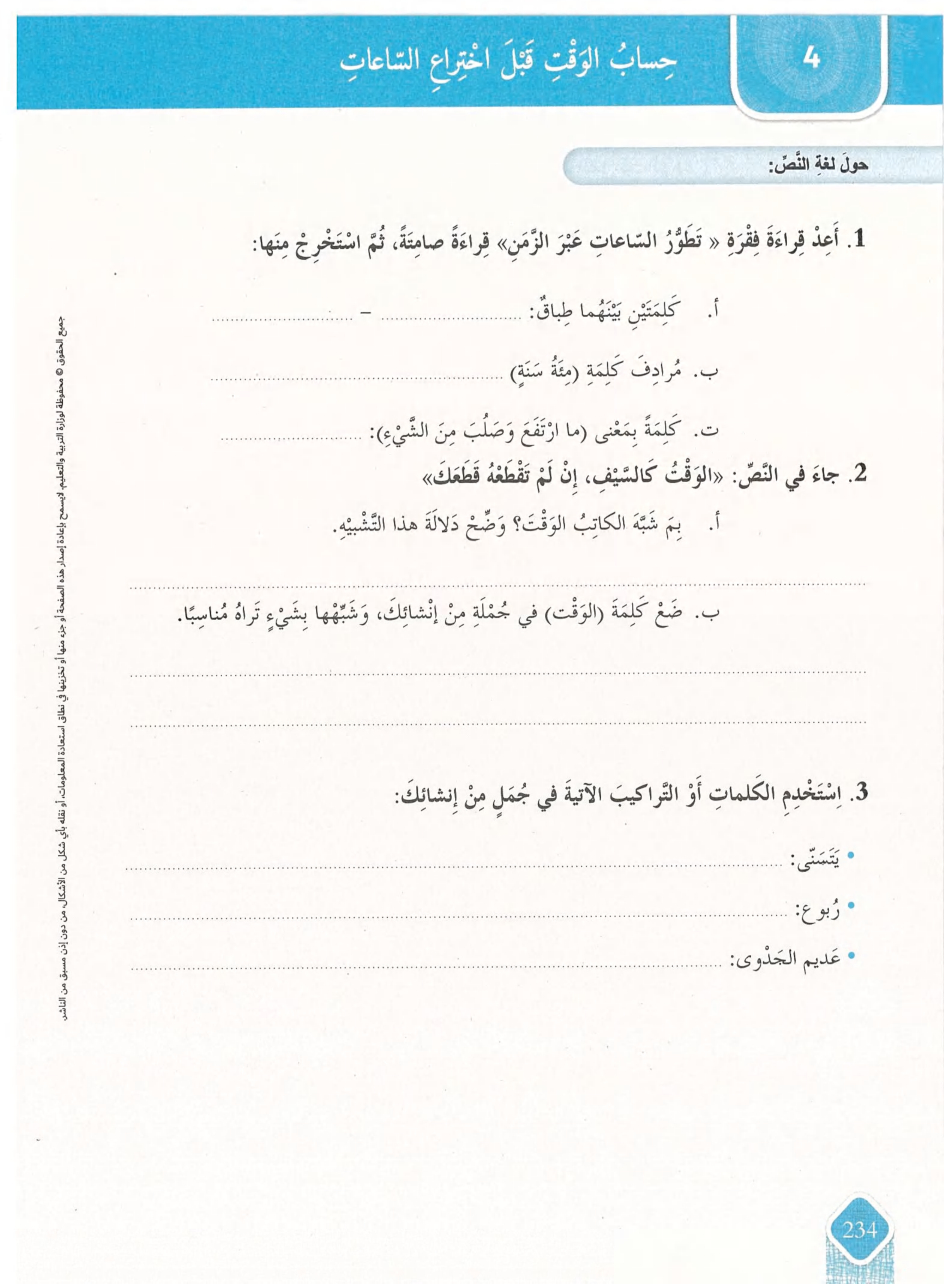 4
حِسابُ الوَقْتِ قَبْلَ اخْتِراعِ السّاعاتِ
حولَ لغةِ النَّصِّ:
1. أَعِدْ قِراءَةَ فِقْرَةِ « تَطَوُّرُ السّاعاتِ عَبْرَ الزَّمَنِ» قِراءَةً صامِتَةً، ثُمَّ اسْتَخْرِجْ مِنَها:
أ. كَلِمَتَيْنِ بَيْنَهُما طِباقٌ: .............................. – ..............................
ب. مُرادِفَ كَلِمَةِ (مِئَةُ سَنَةٍ) ............................................................
ت. كَلِمَةً بِمَعْنى (ما ارْتَفَعَ وَصَلُبَ مِنَ الشَّيْءِ): ..............................
2. جاءَ في النَّصِّ: «الوَقْتُ كَالسَّيْفِ، إِنْ لَمْ تَقْطَعْهُ قَطَعَكَ»
أ. بِمَ شَبَّهَ الكاتِبُ الوَقْتَ؟ وَضِّحْ دَلالَةَ هذا التَّشْبيْهِ.
ب. ضَعْ كَلِمَةَ (الوَقْت) في جُمْلَةِ مِنْ إِنْشائِكَ، وَشَبِّهْها بِشَيْءٍ تَراهُ مُناسِبًا.
3. اِسْتَخْدِمِ الكَلماتِ أَوْ التَّراكيبَ الآتيةَ في جُمَلٍ مِنْ إِنشائِكَ:
• يَتَسَنّى: ............................................................
• رُبوع: ............................................................
• عَديم الجَدْوى: ............................................................
جميع الحقوق © محفوظة لوزارة التربية والتعليم. لايسمح بإعادة إصدار هذه الصفحة أو جزء منها أو تخزينها في نطاق استعادة المعلومات، أو نقله بأي شكل من الأشكال، من دون إذن مسبق من الناشر.
234